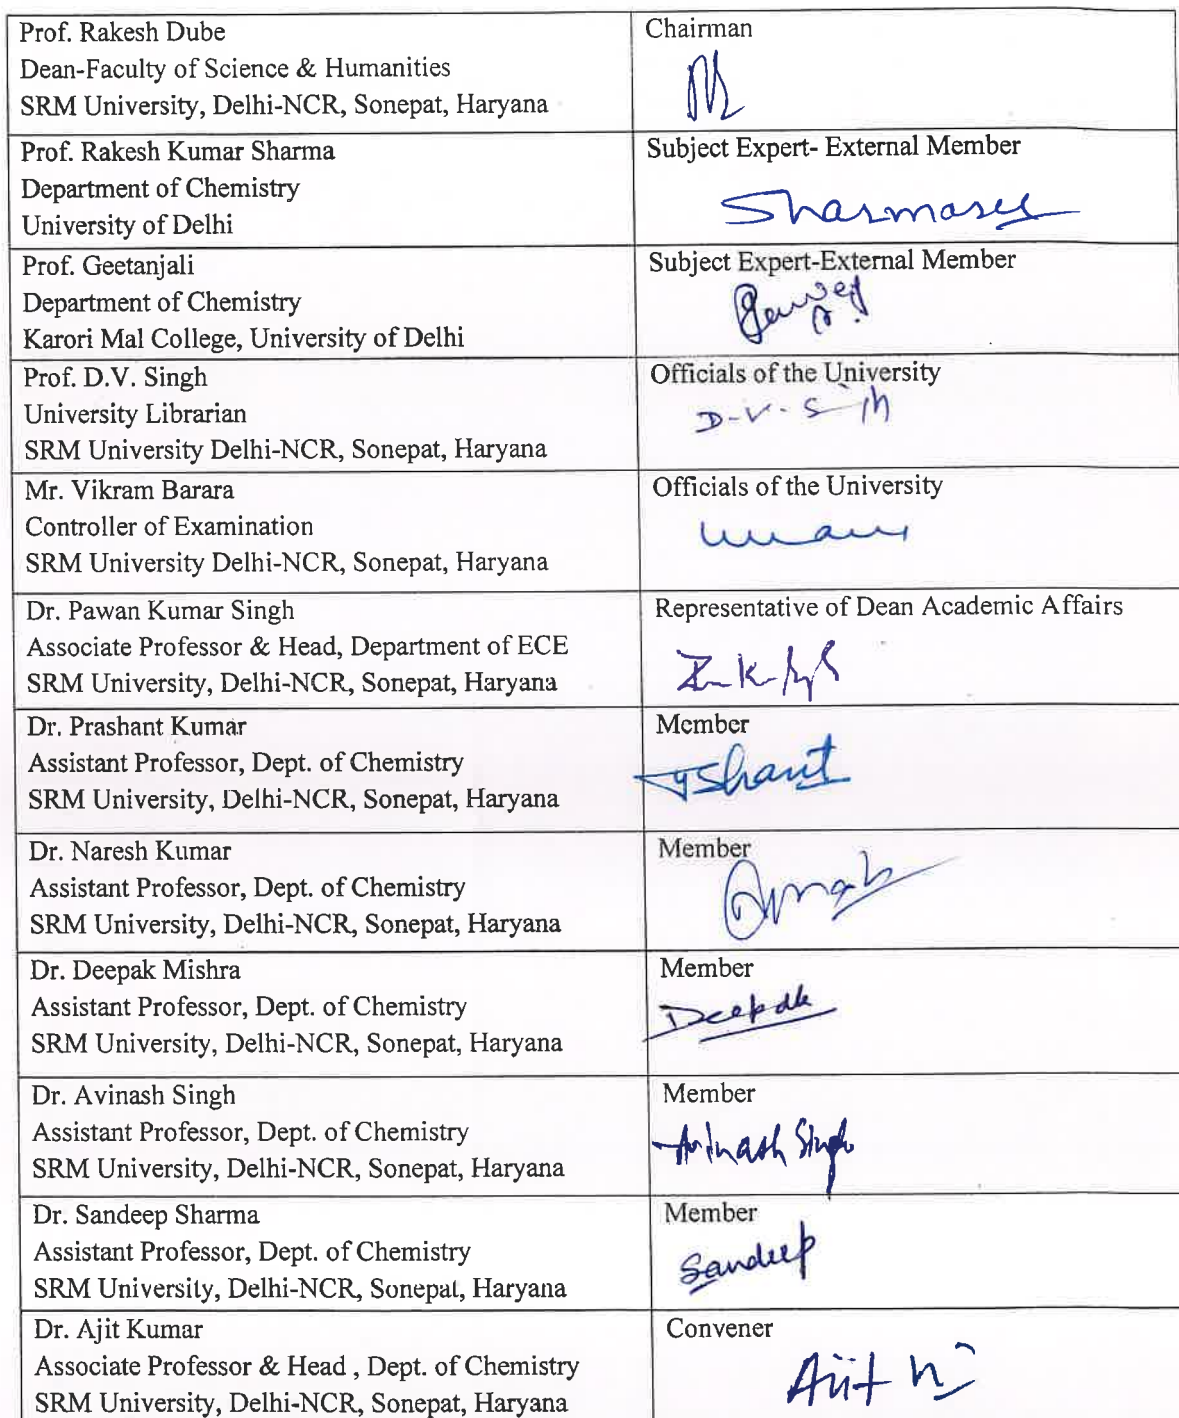 Prof. Rakesh Dube
Dean-Faculty of Science & Humanities
SRM University, Delhi-NCR, Sonepat, Haryana
Chairman
Prof. Rakesh Kumar Sharma
Department of Chemistry
University of Delhi
Subject Expert- External Member
Prof. Geetanjali
Department of Chemistry
Karori Mal College, University of Delhi
Subject Expert-External Member
Prof. D.V. Singh
University Librarian
SRM University Delhi-NCR, Sonepat, Haryana
Officials of the University
D-V-Singh
Mr. Vikram Barara
Controller of Examination
SRM University Delhi-NCR, Sonepat, Haryana
Officials of the University
Dr. Pawan Kumar Singh
Associate Professor & Head, Department of ECE
SRM University, Delhi-NCR, Sonepat, Haryana
Representative of Dean Academic Affairs
Dr. Prashant Kumar
Assistant Professor, Dept. of Chemistry
SRM University, Delhi-NCR, Sonepat, Haryana
Member
Dr. Naresh Kumar
Assistant Professor, Dept. of Chemistry
SRM University, Delhi-NCR, Sonepat, Haryana
Member
Dr. Deepak Mishra
Assistant Professor, Dept. of Chemistry
SRM University, Delhi-NCR, Sonepat, Haryana
Member
Deepak
Dr. Avinash Singh
Assistant Professor, Dept. of Chemistry
SRM University, Delhi-NCR, Sonepat, Haryana
Member
Avinash Singh
Dr. Sandeep Sharma
Assistant Professor, Dept. of Chemistry
SRM University, Delhi-NCR, Sonepat, Haryana
Member
Sandeep
Dr. Ajit Kumar
Associate Professor & Head , Dept. of Chemistry
SRM University, Delhi-NCR, Sonepat, Haryana
Convener
Ajit